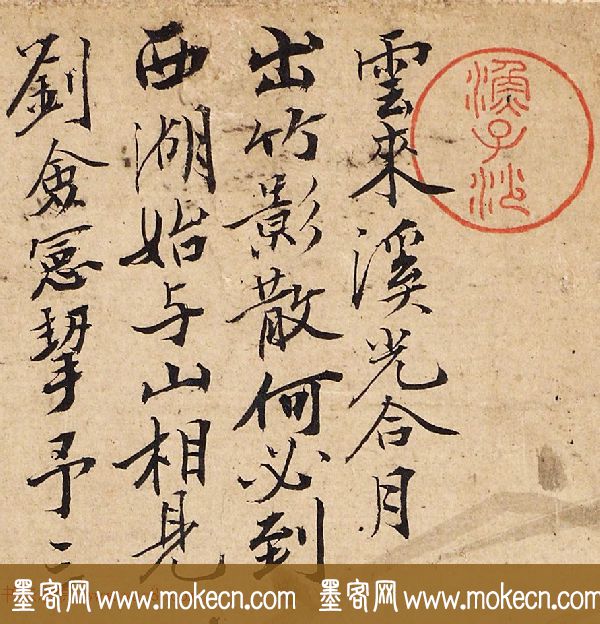 雲來溪光合月
出竹影散何必到
西湖始与山相見
劉僉憲挈予
墨客网 www.mokecn.com 墨客网 www.mokecn.com